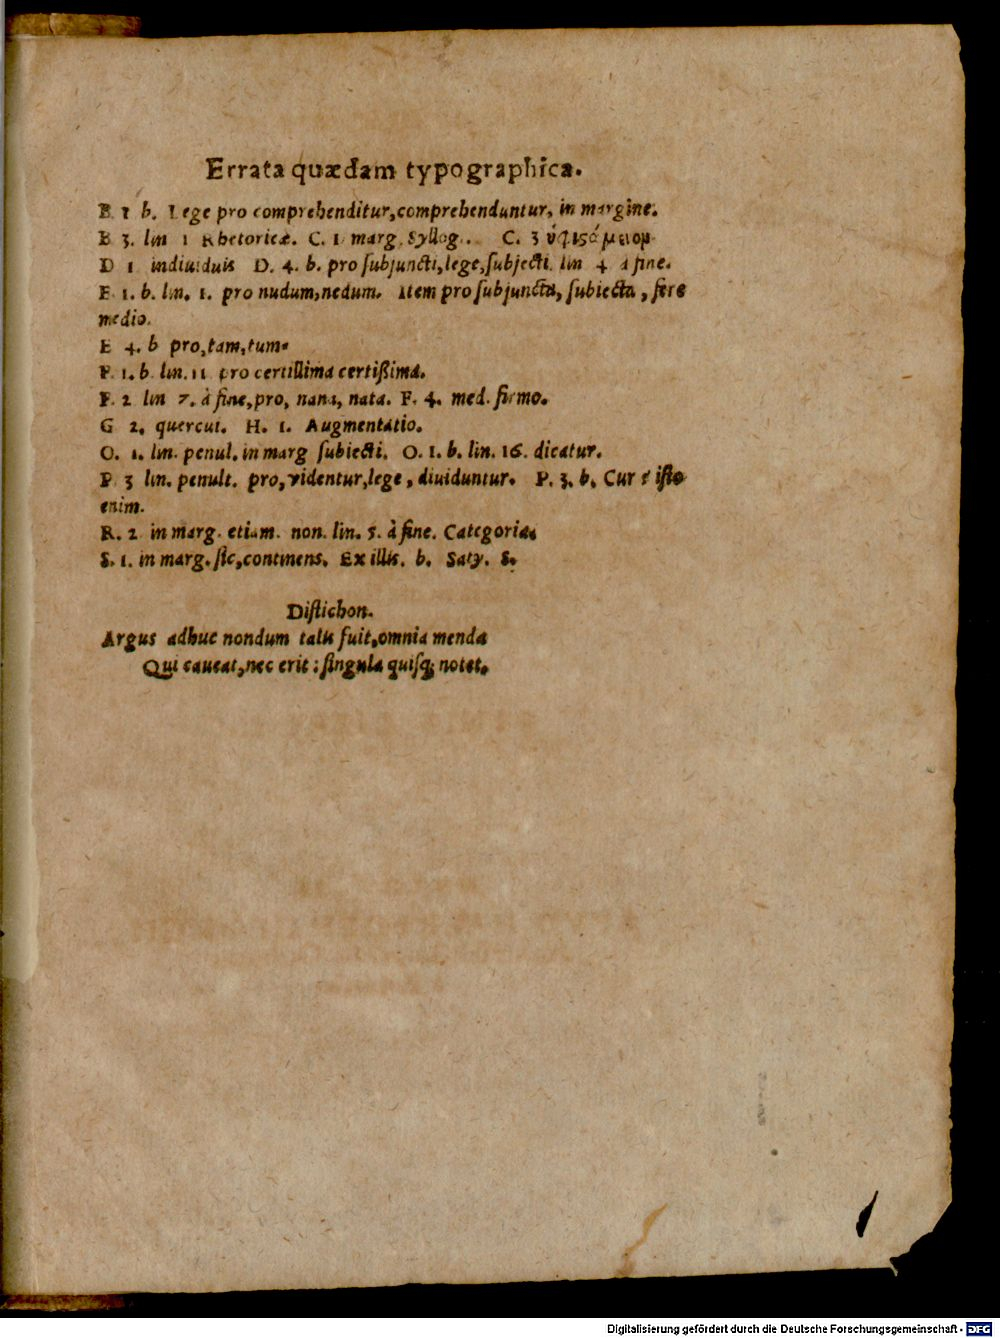 Errata quædam typographica.
B 1 b. Lege pro comprehenditur, comprehenduntur, in margine.
B 3. lin 1 Rhetoricæ. C. 1 marg. Syllog.. C. 3
D 1 indiuiduis D. 4. b. pro ſubjuncti, lege, ſubjecti. lin 4 à fine.
E 1. b. lin. 1. pro nudum, nedum. Item pro ſubjuncta, ſubiecta, fere
medio.
E 4. b pro, tam, tum.
F. 1. b. lin. 11 pro certiſſima certißima.
F. 2 lin 7. à fine, pro, nana, nata. F. 4. med. firmo.
G 2. quercui. H. 1. Augmentatio.
O. 1. lin. penul. in marg ſubiecti. O. 1. b. lin. 16. dicatur.
P. 3 lin. penult. pro, videntur, lege, diuiduntur. P. 3. b. Cur iſto
enim.
R. 2 in marg. etiam. non. lin. 5. à fine. Categoria.
S. 1. in marg. ſic, continens. Ex illis. b. Saty. S.
Diſtichon.
Argus adhuc nondum talis fuit, omnia menda
Qui caueat, nec erit: ſingula quiſq; notet.
Digitalisierung gefördert durch die Deutsche Forschungsgemeinschaft - DFG